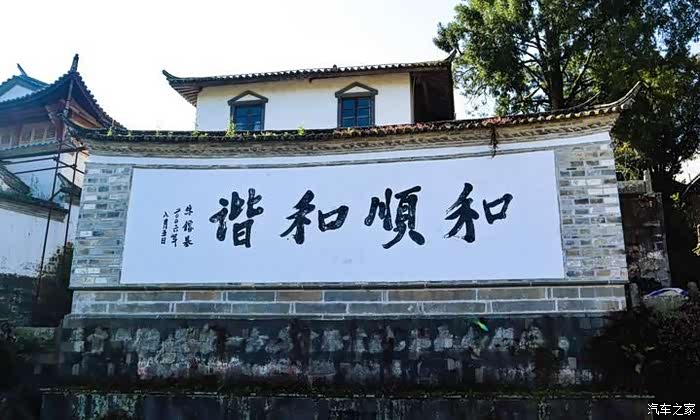 和順和谐
朱镕基
二〇〇六年
八月五日
汽车之家